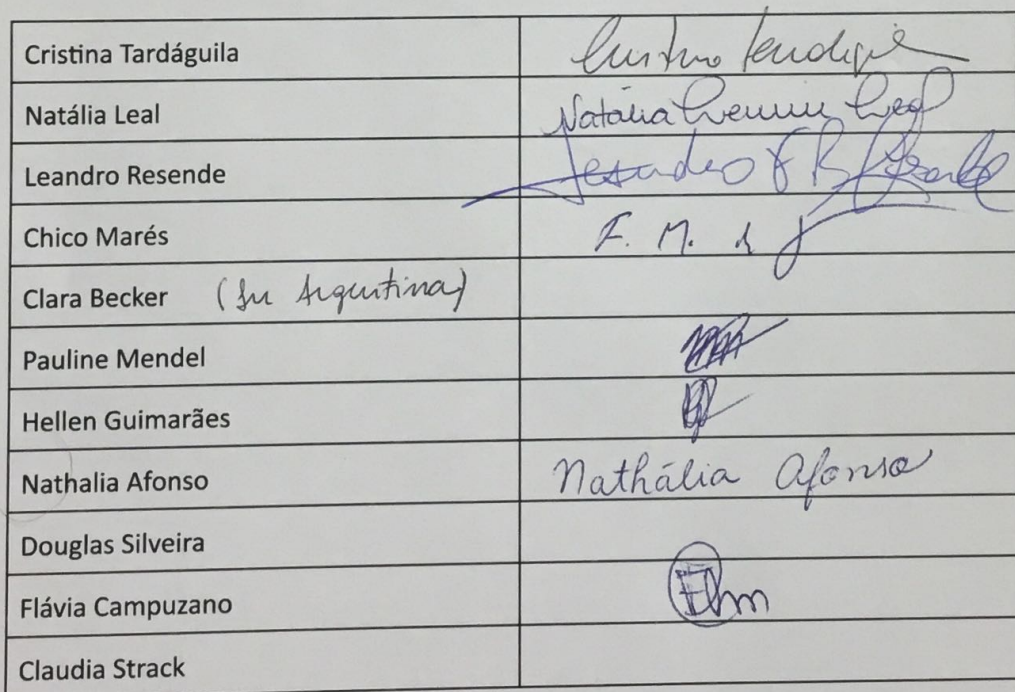 Cristina Tardáguila
Natália Leal Natália Leal
Leandro Resende Leandro
Chico Marés F. M.
Clara Becker (Em Argentina)
Pauline Mendel
Hellen Guimarães
Nathalia Afonso Nathália Afonso
Douglas Silveira
Flávia Campuzano
Claudia Strack